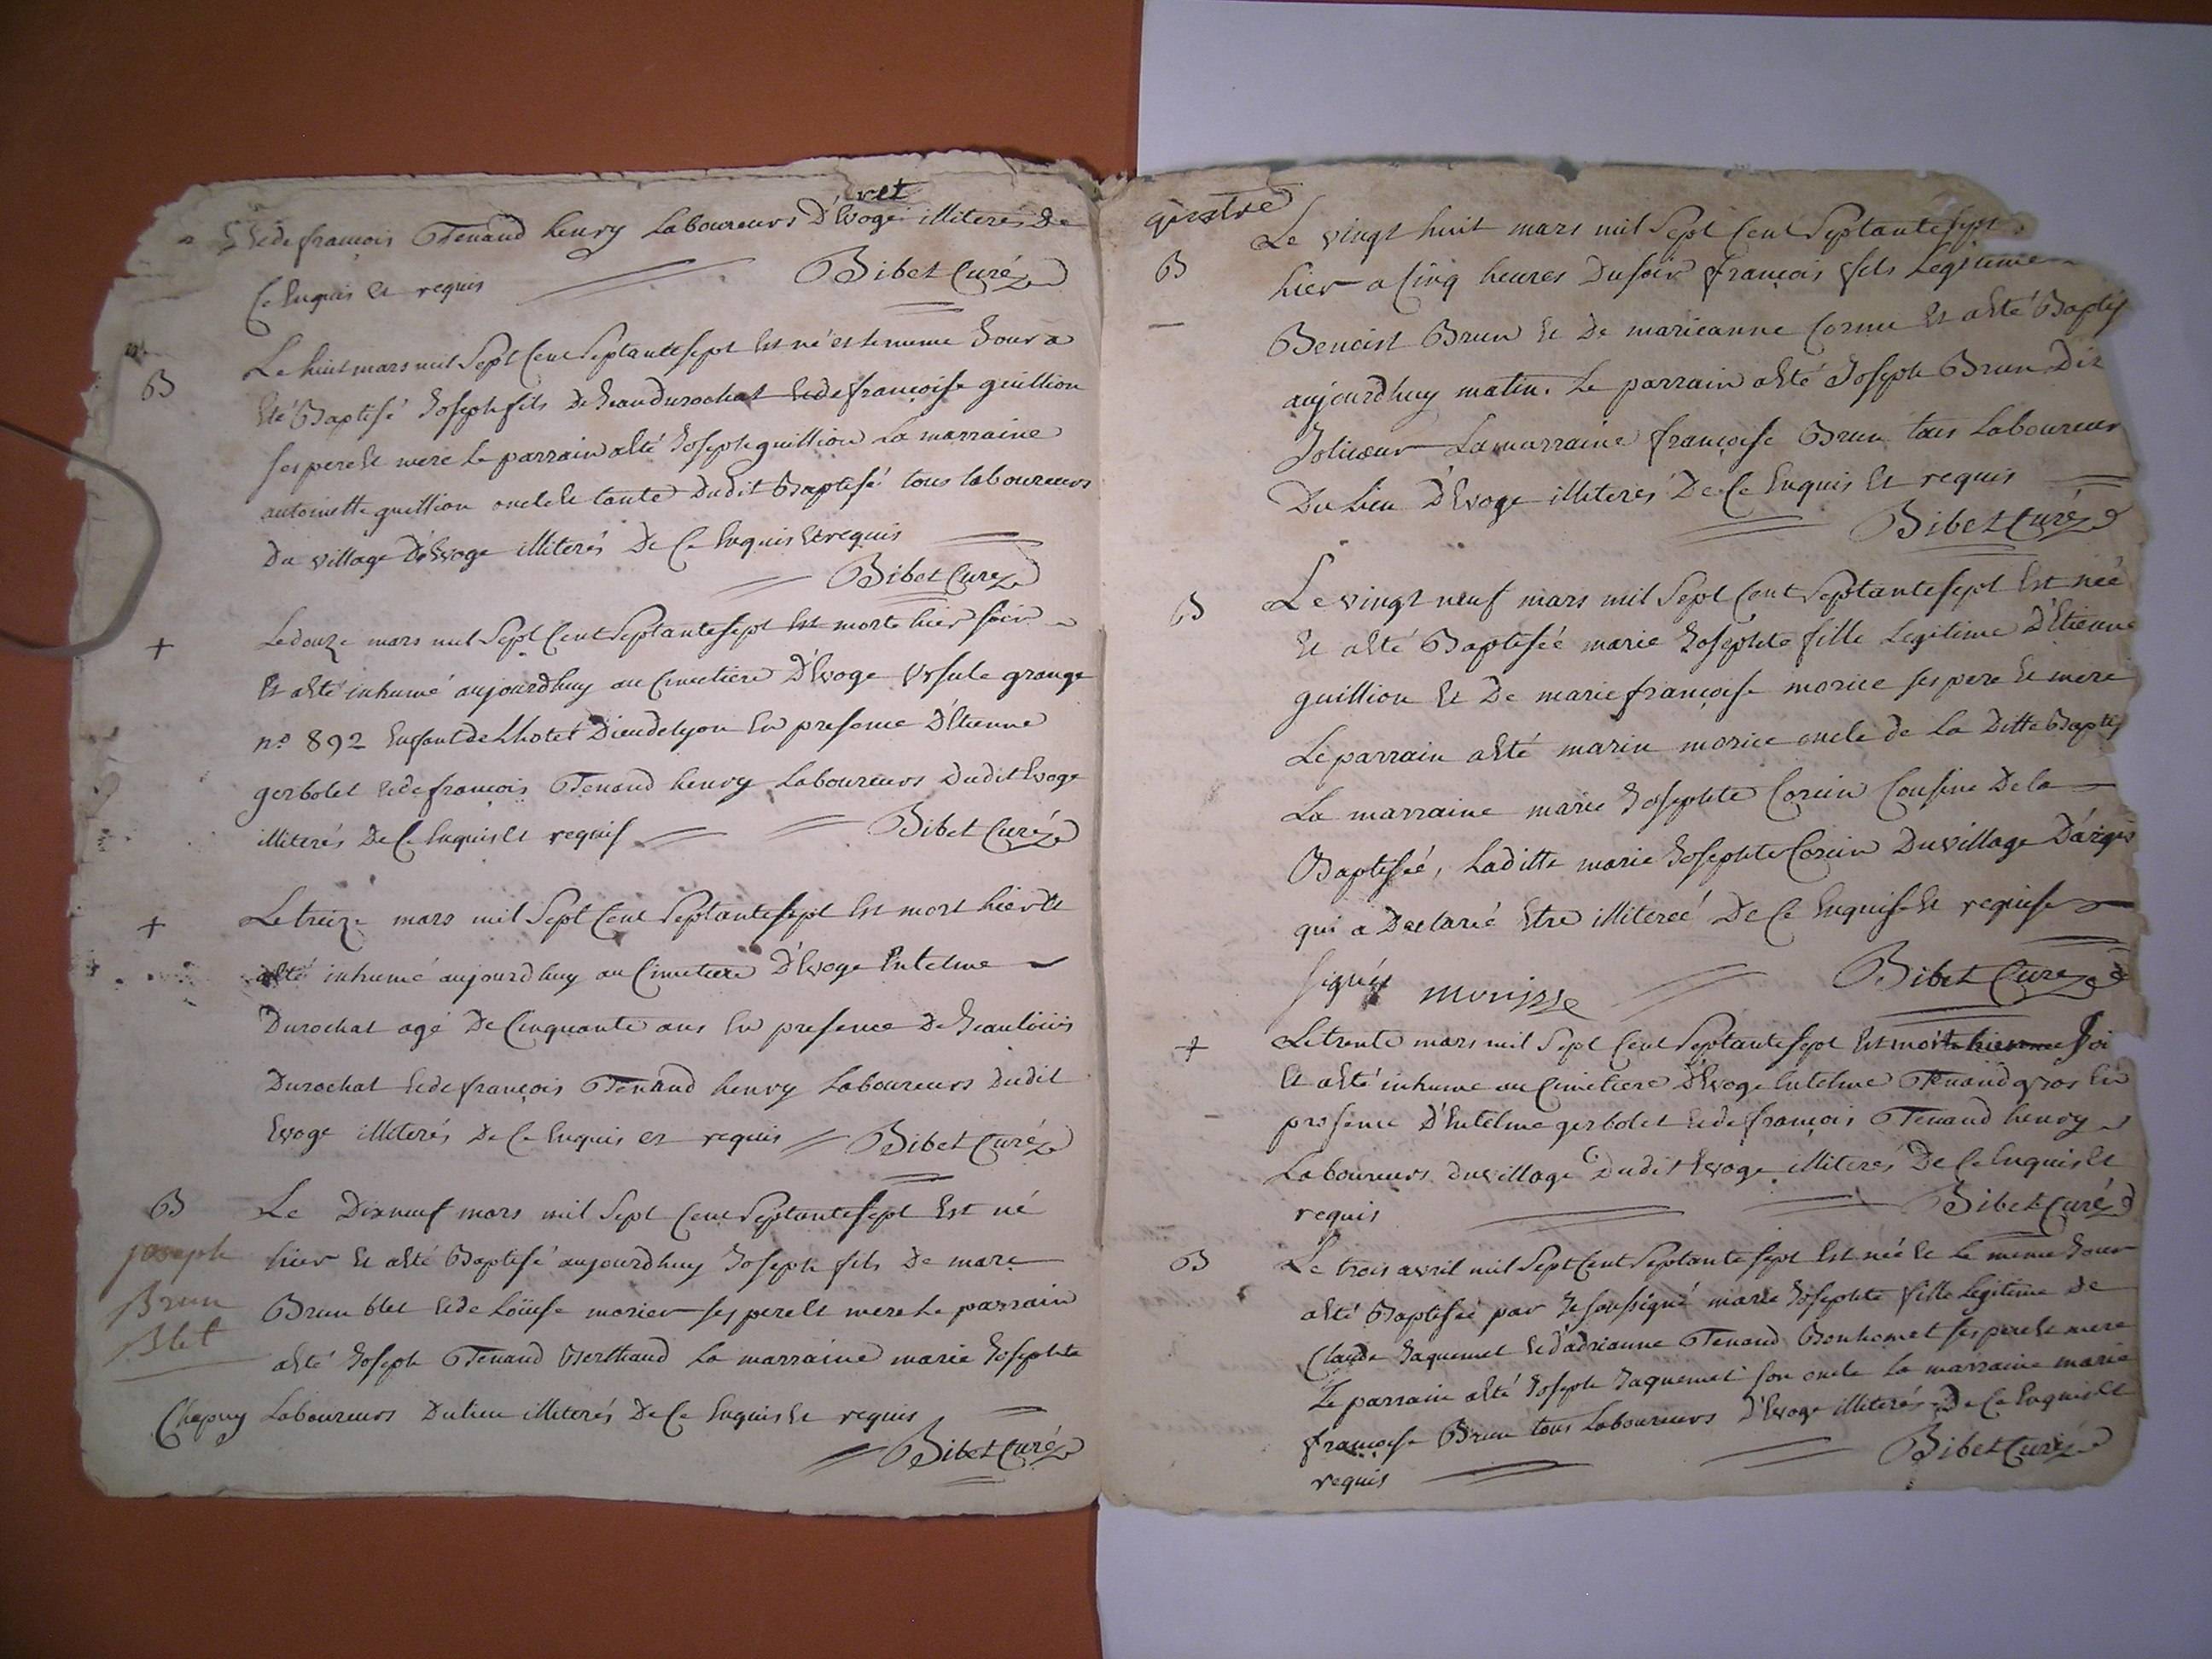 Et de françois Tenand henry Laboureurs D'Evoge illiterés De
ret
Ce Enquis Et requis Bibet Curé
B
Le huit mars mil Sept Cent Septante sept Est né et le meme Jour a
Eté Baptisé Joseph fils De Jean Durochat Et de françoise guillion
ses pere Et mere Le parrain a Eté Joseph guillion La marraine
antoinette guillion oncle Et tante Dudit Baptisé tous laboureurs
Du village D'Evoge illiterés De Ce Enquis Et requis
Bibet Curé
+
Le douze mars mil Sept Cent Septante sept Est morte hier soir
Et a Eté inhumé aujourdhuy au Cimetiere D'Evoge Ursule grange
n.º 892 Enfant de Lhotel Dieu de lyon En presence D'Etienne
gerbolet Et de françois Tenand henry Laboureurs Dudit Evoge
illiterés De Ce Enquis Et requis Bibet Curé
+
Le treize mars mil Sept Cent Septante sept Est mort hier Et
a Eté inhumé aujourdhuy au Cimetiere D'Evoge Entelme
Durochat agé De Cinquante ans En presence De Jean loüis
Durochat Et de françois Tenand henry Laboureurs Dudit
Evoge illiterés De Ce Enquis et requis Bibet Curé
B
Le Dixneuf mars mil Sept Cent Septante sept Est né
joseph
Brun
Blet
hier Et a Eté Baptisé aujourdhuy Joseph fils De marc
Brun blet Et de Loüise morier ses pere Et mere Le parrain
a Eté Joseph Tenand Berthaud La marraine marie Josephte
Chapuy Laboureurs Du lieu illiterés De Ce Enquis Et requis
Bibet Curé
gistre
B
Le vingt huit mars mil Sept Cent Septante sept
hier a Cinq heures Du soir françois fils Legitime
Benoist Brun Et De marieanne Cornu Et a Eté Baptis
aujourdhuy matin. Le parrain a Eté Joseph Brun Dit
Jolicoeur La marraine françoise Brun tous Laboureur
Du Lieu D'Evoge illiterés De Ce Enquis Et requis
Bibet Curé
B
Le vingt neuf mars mil Sept Cent Septante sept Est née
Et a Eté Baptisée marie Josephte fille Legitime D'Etienne
guillion Et De marie françoise morice ses pere Et mere
Le parrain a Eté marin morice oncle de La Ditte Baptis
La marraine marie Josephte Corcin Cousine De la
Baptisée, Laditte marie Josephte Corcin Du village D'argis
qui a Declaré Etre illiterée De Ce Enquise Et requise
signés morisse Bibet Curé
+
Le trente mars mil Sept Cent Septante sept Est mort hier soi
Et a Eté inhume au Cimetiere D'Evoge Entelme Tenand gros En
presence D'Entelme gerbolet Et de françois Tenand henry
Laboureurs du village Dudit Evoge illiterés De Ce Enquis Et
requis Bibet Curé
B
Le trois avril mil Sept Cent Septante sept Est née Et Le meme Jour
a Eté Baptisée par Je soussigné marie Josephte fille Legitime De
Claude Jaquemet Et d'adrianne Tenand Bonhomet ses pere Et mere
Le parrain a Eté Joseph Jaquemet son oncle La marraine marie
françoise Brun tous Laboureurs D'Evoge illiterés De Ce Enquis Et
requis Bibet Curé